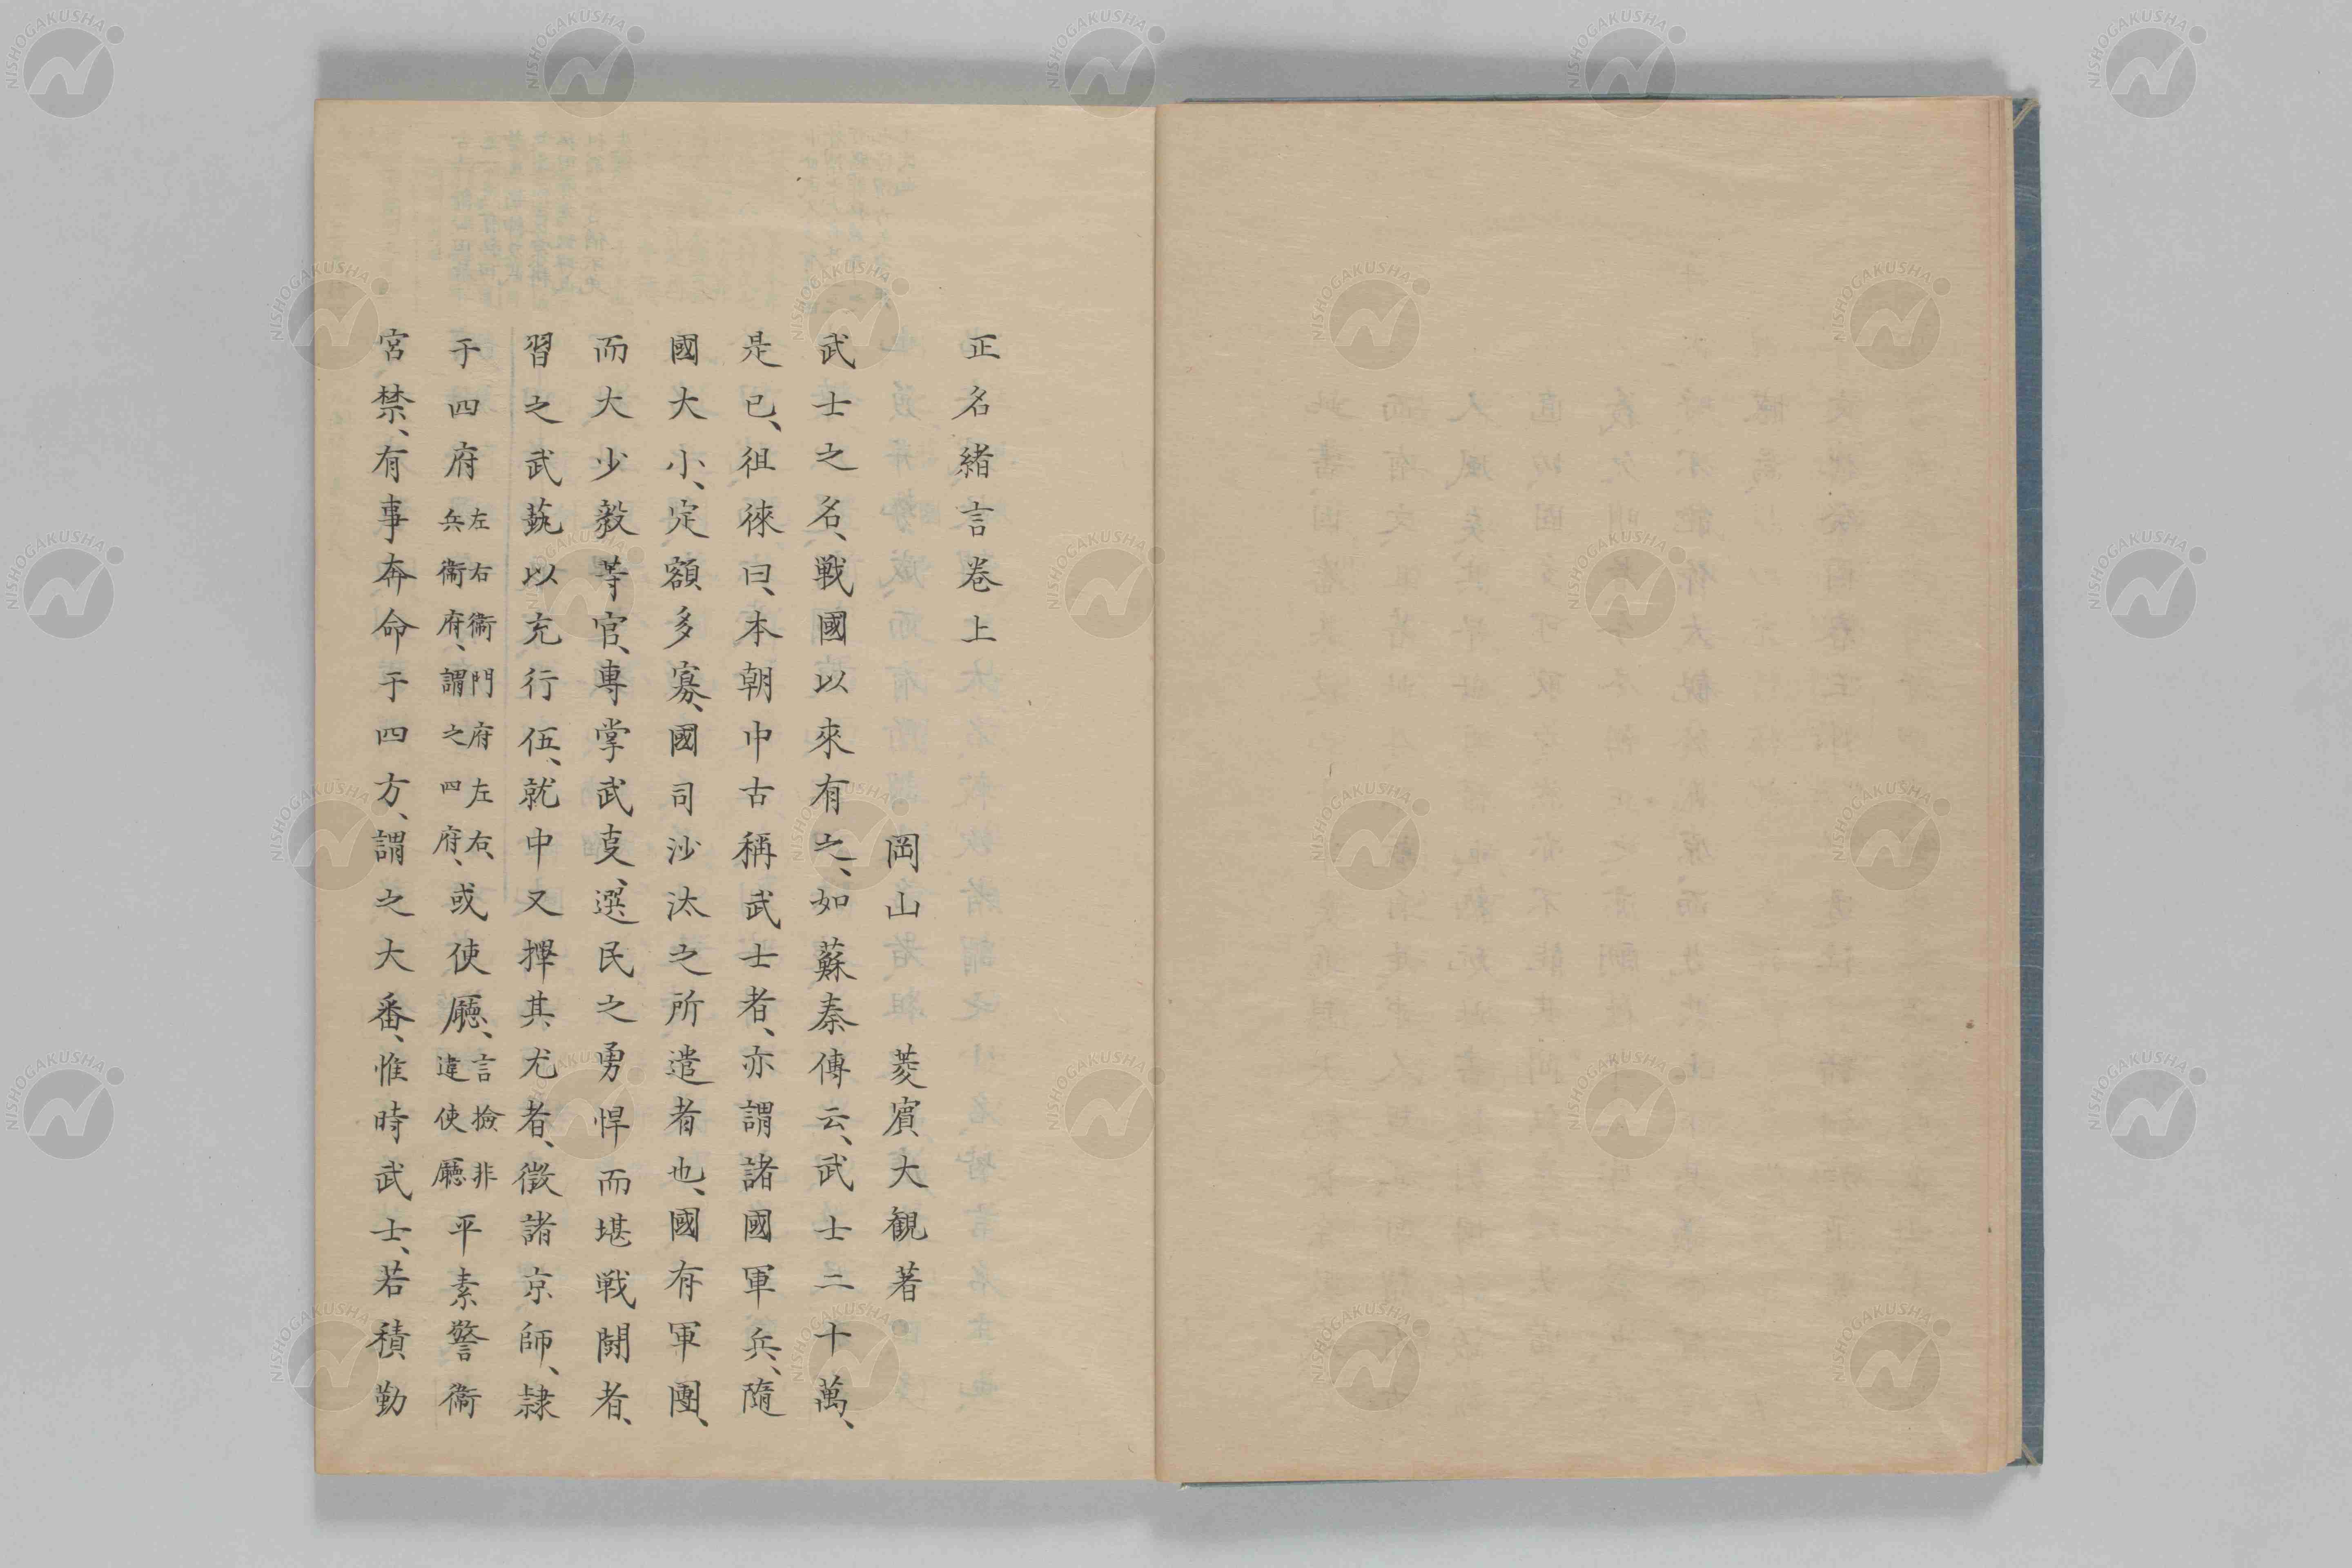 正名緒言巻上
岡山　菱賔大観著
武士之名、戦國以來有之、如蘇秦傳云、武士二十萬、
是已、徂徠曰、本朝中古稱武士者、亦謂諸國軍兵、隨
國大小、定額多寡、國司沙汰之所遣者也、國有軍團、
而大少毅等官、專掌武叓、選民之勇悍而堪戦鬪者、
習之武蓺以充行伍、就中又擇其尤者、徴諸京師、隷
于四府左右衞門府左右兵衞府、謂之四府、或使廳、言撿非違使廳平素警衞
宮禁、有事奔命于四方、謂之大番、惟時武士、若積勤
NISHOGAKUSHA